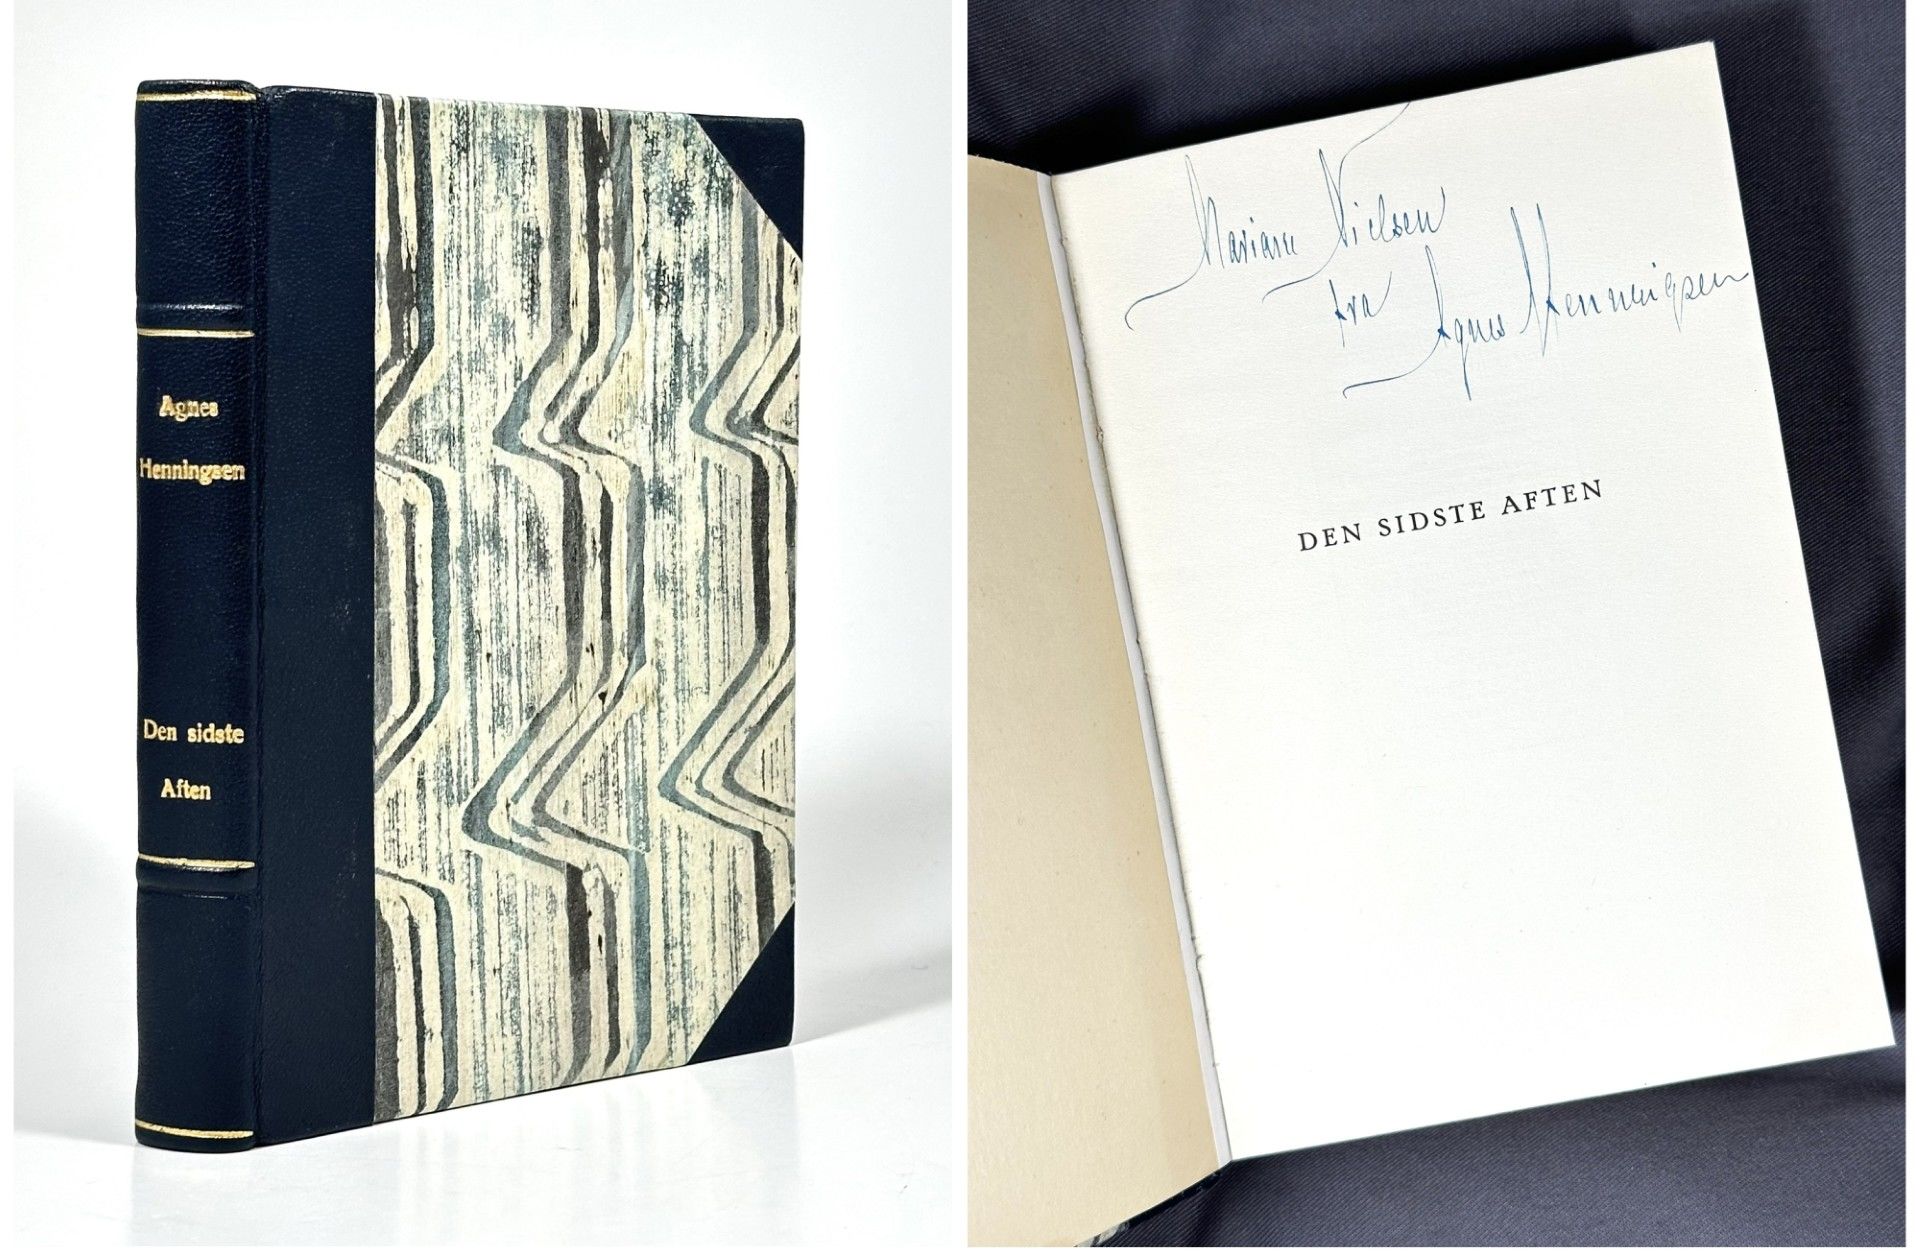 Agnes
Henningsen
Den sidste
Aften
Mariane Nielsen
fra Agnes Henningsen
DEN SIDSTE AFTEN